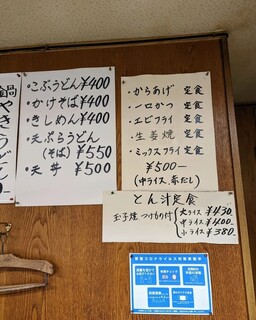 鍋やきうどん
・こぶうどん ¥400
・かけそば ¥400
・きしめん ¥400
・天ぷらうどん
(そば) ¥550
・天丼 ¥500
・からあげ 定食
・一口かつ 定食
・エビフライ 定食
・生姜焼 定食
・ミックスフライ 定食
¥500—
(中ライス、赤だし)
とん汁定食
玉子焼 つけもの付
大ライス ¥430.
中ライス ¥400.
小ライス ¥380.